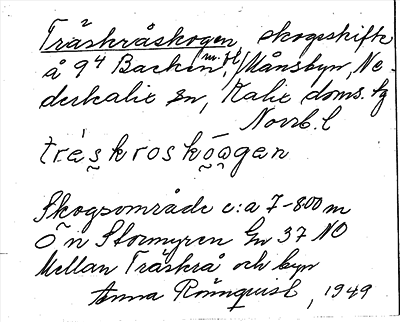 Träskråskogen, skogsskifte
å 9⁴ Backen m. fl, Månsbyn, Ne-
derkalix sn, Kalix doms. tg
Norrb. l
trḙ̀s̬kroskō̬a̬gen
Skogsområde c:a 7-800 m
Ö n Stormyren Gn 37 NO
Mellan Träskrå och byn
Anna Rönnquist, 1949